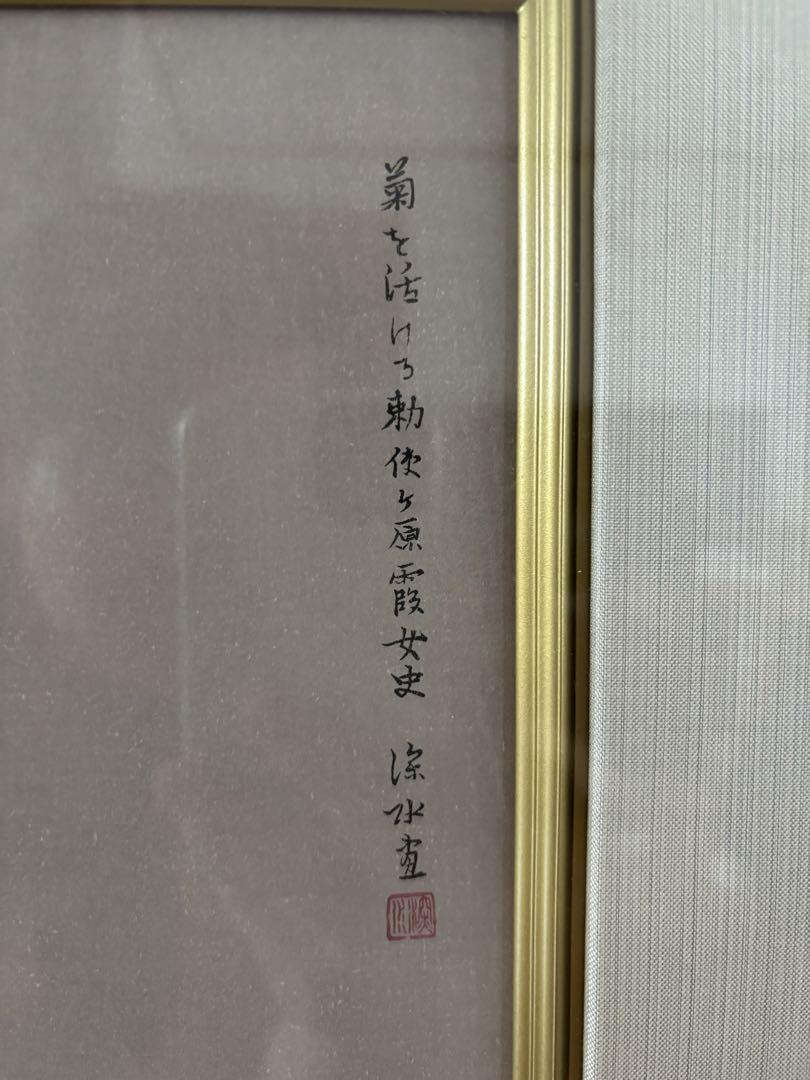 菊を活ける勅使ヶ原霞女史 深水画
深水